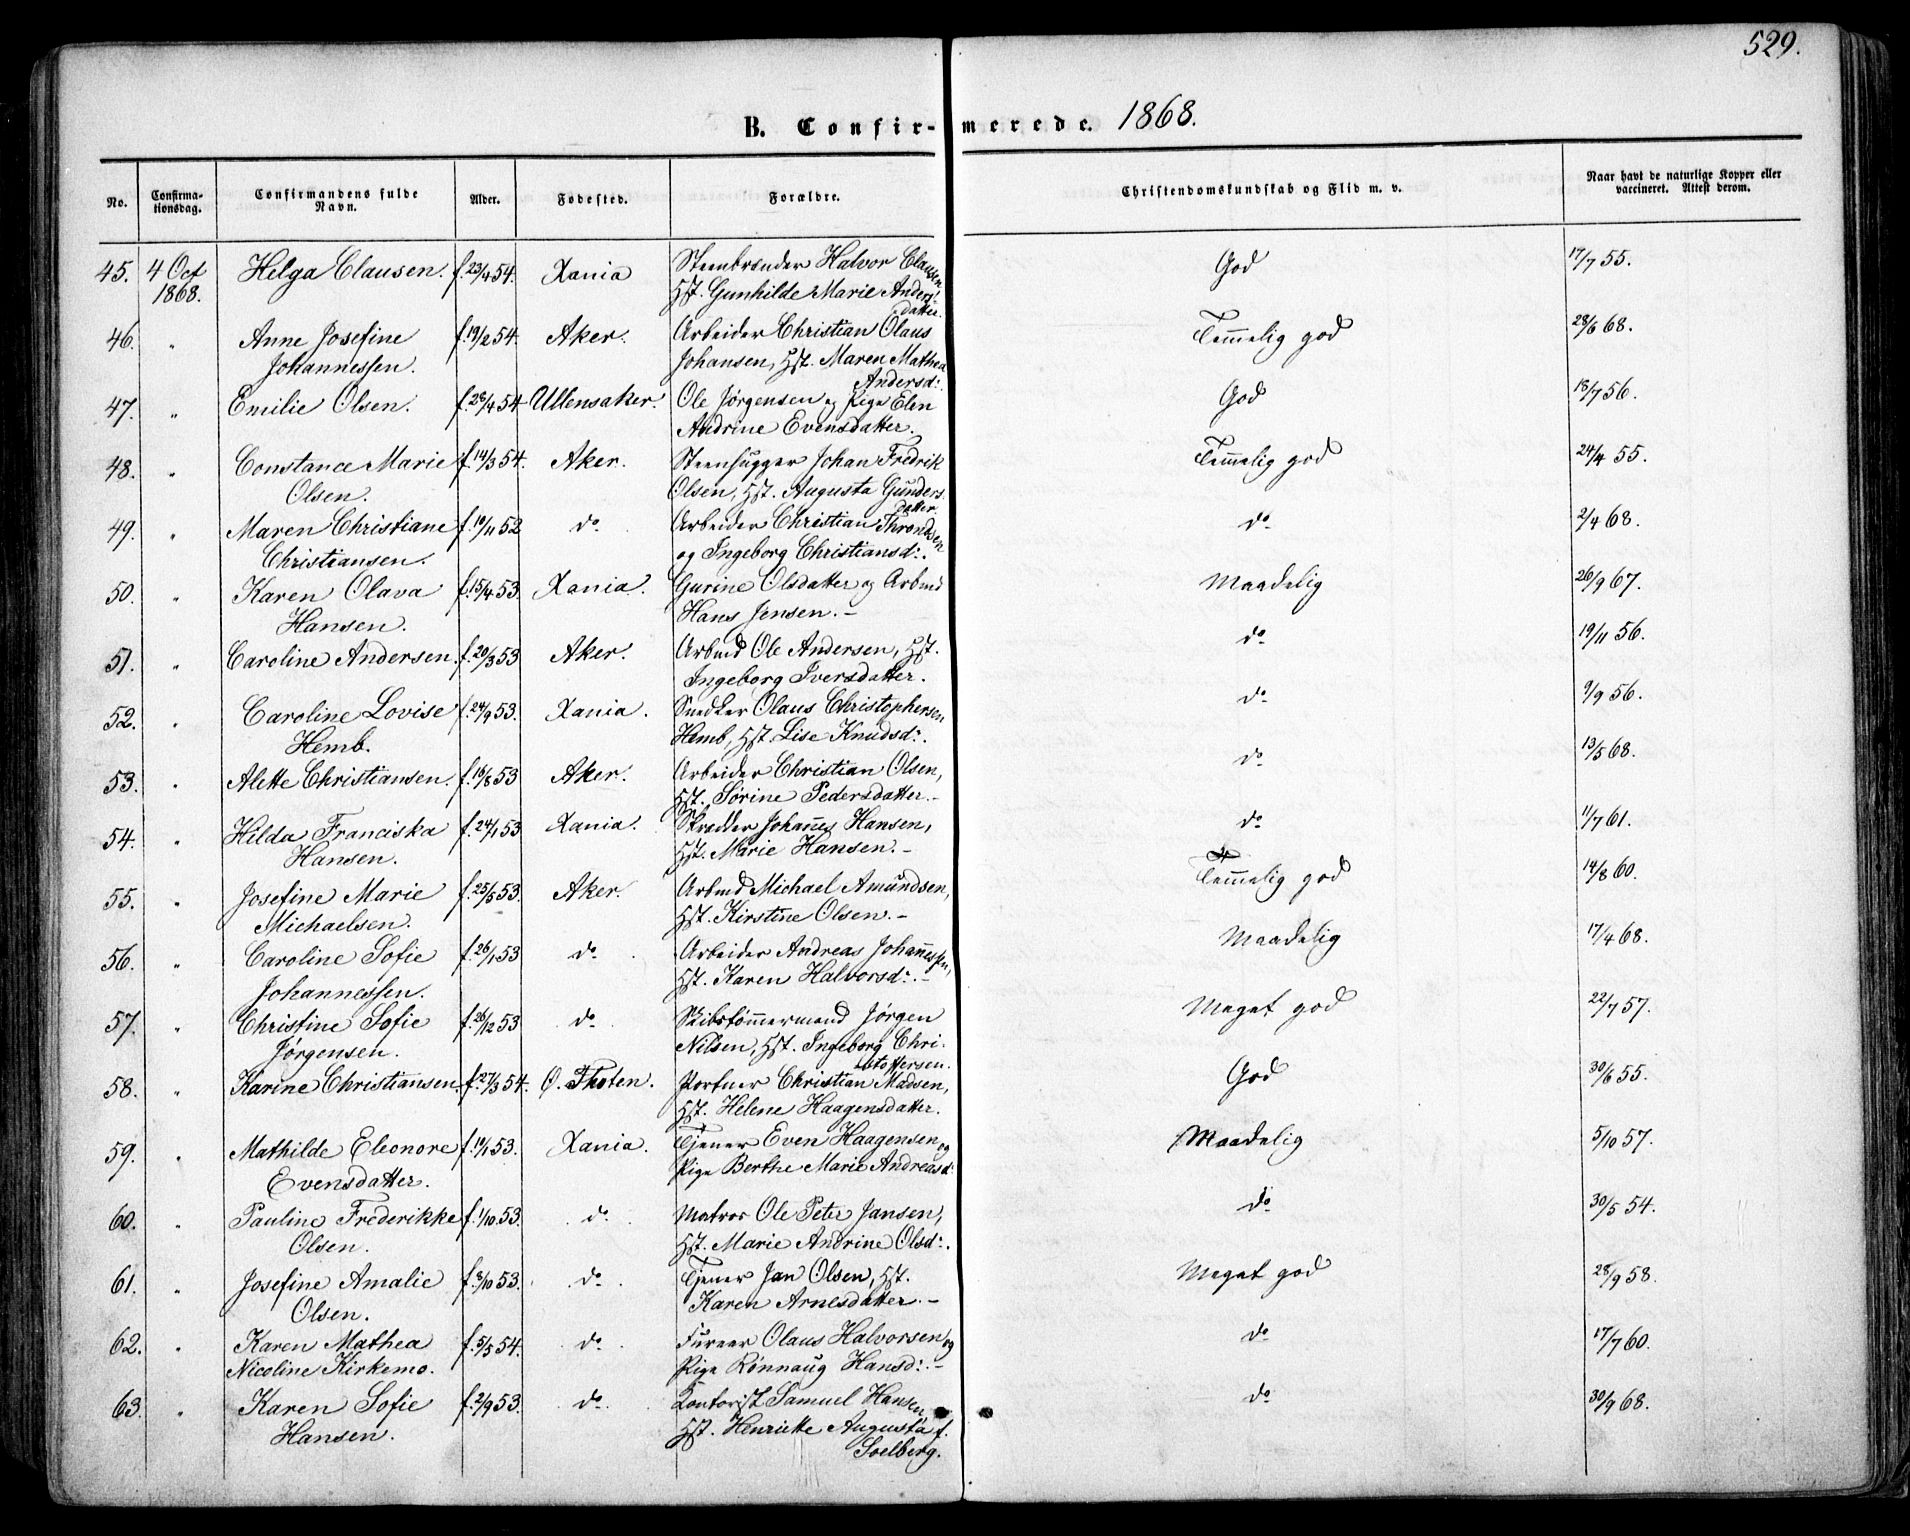 529.
B. Confir- merede. 1868.
No. Confirma-tionsdag. Confirmandens fulde Navn. Alder. Fødested. Forældre. Christendomskundskab og Flid m. v. Naar havt de naturlige Kopper eller vaccineret. Attest derom.
45. 4 Oct 1868. Helga Clausen. f. 23/4 54. Xania Steenbrænder Halvor Clausen, God 17/7 55.
Hst. Gunhilde Marie Anders-
datter.
46. " Anne Josefine f. 19/2 54. Aker. Arbeider Christian Olaus Temmelig god 28/6 68.
Johannessen. Johansen, Hst. Maren Mathea
Andersd:
47. " Emilie Olsen. f. 28/4 54. Ullensaker. Ole Jørgensen og Pige Elen God 18/7 56.
Andrine Evensdatter.
48. " Constance Marie f. 14/3 54. Aker. Steenhugger Johan Fredrik Temmelig god 24/4 55.
Olsen. Olsen, Hst. Augusta Gunders-
datter.
49. " Maren Christiane f. 10/11 52 do Arbeider Christian Throndsen do 2/4 68.
Christiansen. og Ingeborg Christiansd:.
50. " Karen Olava f. 15/4 53. Xania. Gurine Olsdatter og Arbmd Maadelig 26/9 67.
Hansen. Hans Jensen. -
51. " Caroline Andersen. f. 20/3 53 Aker. Arbmd Ole Andersen, Hst. do 19/11 56.
Ingeborg Iversdatter.
52. " Caroline Lovise f. 24/9 53. Xania. Snedker Olaus Christophersen do 9/9 56.
Hemb. Hemb, Hst. Lise Knudsd:.
53. " Alette Christiansen. f. 16/8 53 Aker. Arbeider Christian Olsen, do 13/5 68.
Hst. Sørine Pedersdatter. -
54. " Hilda Franciska f. 24/1 53 Xania. Skrædder Johannes Hansen, do 11/7 61.
Hansen. Hst. Marie Hansen. -
55. " Josefine Marie f. 25/5 53. Aker. Arbmd Michael Amundsen, Temmelig god 14/8 60.
Michaelsen. Hst. Kirstine Olsen. -
56. " Caroline Sofie f. 26/1 53 do Arbeider Andreas Johannessen, Maadelig 17/4 68.
Johannessen. Hst. Karen Halvorsd:. -
57. " Christine Sofie f. 26/12 53 do Skibstømmermand Jørgen Meget god 22/7 57.
Jørgensen. Nilsen, Hst. Ingeborg Chri-
stoffersen.
58. " Karine Christiansen. f. 27/3 54. O. Thoten. Portner Christian Madsen, God 30/6 55.
Hst. Helene Haagensdatter.
59. " Mathilde Eleonore f. 19/1 53. Xania. Tjener Even Haagensen og Maadelig 5/10 57.
Evensdatter. Pige Berthe Marie Andreasd:
60. " Pauline Frederikke f. 1/10 53. do Matros Ole Peter Jansen, do 30/5 54.
Olsen. Hst. Marie Andrine Olsd:.
61. " Josefine Amalie f. 8/10 53. do Tjener Jan Olsen, Hst. Meget god 28/9 58.
Olsen. Karen Arnesdatter. -
62. " Karen Mathea f. 5/5 54. do Fureer Olaus Halvorsen og do 17/7 60.
Nicoline Kirkemo. Pige Rønnaug Hansd:. -
63. " Karen Sofie f. 2/9 53. do Kontorist Samuel Hansen, do 30/9 68.
Hansen. Hst. Henriette Augusta f.
Soelberg.